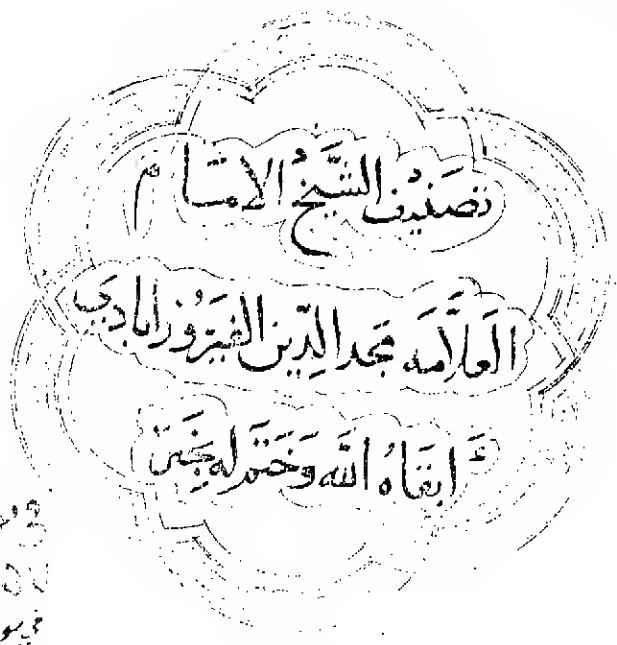 تصنيف الشَّيْخُ الامام
العَلاَّمه مجد الدِّين الفيَرُوزابادي
ابقاهُ الله وَخَتَم له بخَير